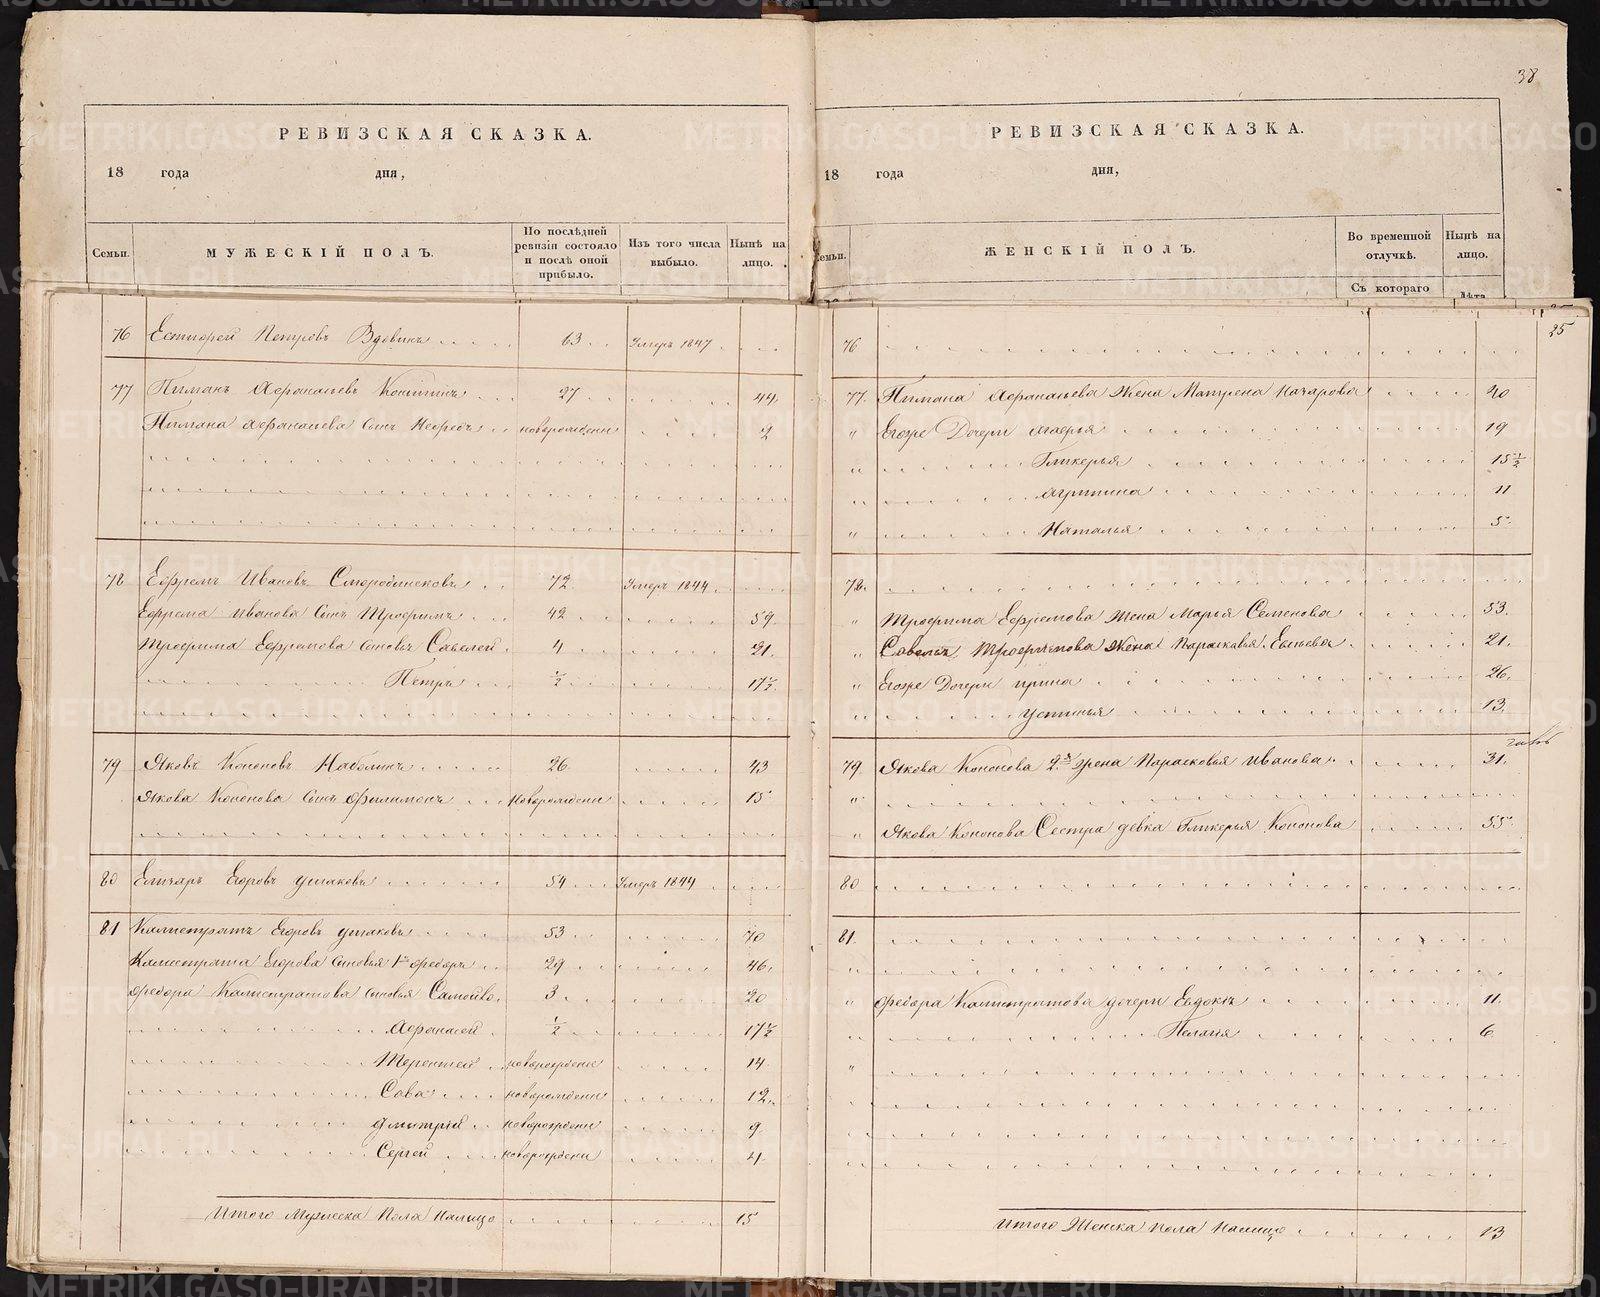 38
РЕВИЗСКАЯ СКАЗКА.
18 года дня,
Семьи.
МУЖЕСКІЙ ПОЛЪ.
По послѣдней ревизіи состояло и послѣ оной прибыло.
Изъ того числа выбыло.
Нынѣ на лицо.
76 Петровъ Вдовинъ 63 Умеръ 1847
77 Пиманъ Афанасьевъ 27 44
Пимана Афанасьева Сынъ новорожденн 2
78 Ефремъ Ивановъ Смородинсковъ 72 Умеръ 1844
Ефрема Иванова Сынъ Трофимъ 42 59
Трофима Ефремова Сыновья Савелей 4 21
Петръ ½ 17½
79 Яковъ Кононовъ Наболинъ 26 43
Якова Кононова Сынъ Филимонъ новорожденн 15
80 Елизаръ Егоровъ Ушаковъ 54 Умеръ 1844
81 Калистратъ Егоровъ Ушаковъ 53 70
Калистрата Егорова Сыновья 1й Федоръ 29 46
Федора Калистратова Сыновья Самойло 3 20
Афанасей ½ 17½
Терентей новорожденн 14
Сава новорожденн 12
Дмитрій новорожденн 9
Сергей новорожденн 4
Итого Мужеска Пола Налицо 15
РЕВИЗСКАЯ СКАЗКА.
18 года дня,
емьи.
ЖЕНСКІЙ ПОЛЪ.
Во временной отлучкѣ.
Нынѣ на лицо.
Съ котораго
Лѣта
25
76
77. Пимана Афанасьева Жена Матрена Назарова 40
" Егоже Дочери Агафья 19
" Гликерья 15½
" Агрипина 11
" Наталья 5
78.
" Трофима Ефремова Жена Марья Семенова 53.
" Савелья Трофимова Жена Парасковья 21.
" Егоже Дочери Ирина 26.
" Устинья 13.
79. Якова Кононова 2я Жена Парасковья Иванова 31.
"
" Якова Кононова Сестра девка Гликерья Кононова 55
80
81.
"
" Федора Калистратова дочери Евдокѣя 11.
" Пелагія 6
"
Итого Женска Пола Налицо 13
METRIKI.GASO-URAL.RU